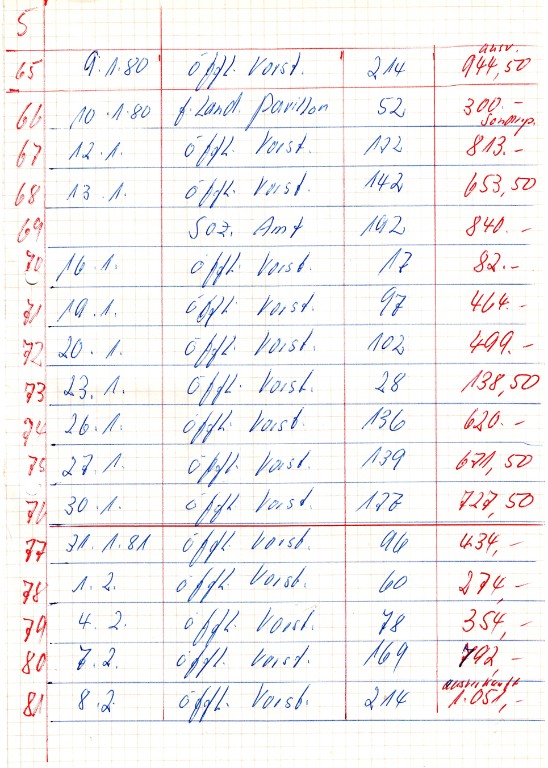 5
65 9.1.80 öfftl. Vorst. 214 ausv. 944,50
66 10.1.80 f. Land. Pavillon 52 300.-
67 12.1. öfftl. Vorst. 172 813.-
68 13.1. öfftl. Vorst. 142 653,50
69 Soz. Amt 192 840.-
70 16.1. öfftl. Vorst. 17 82.-
71 19.1. öfftl. Vorst. 97 464.-
72 20.1. öfftl. Vorst. 102 499.-
73 23.1. öfftl. Vorst. 28 138,50
74 26.1. öfftl. Vorst. 136 620.-
75 27.1. öfftl. Vorst. 139 671,50
76 30.1. öfftl. Vorst. 727,50
77 31.1.81 öfftl. Vorst. 96 434,-
78 1.2. öfftl. Vorst. 60 274,-
79 4.2. öfftl. Vorst. 78 354,-
80 7.2. öfftl. Vorst. 169 792,-
81 8.2. öfftl. Vorst. 214 ausverkauft 1.051,-